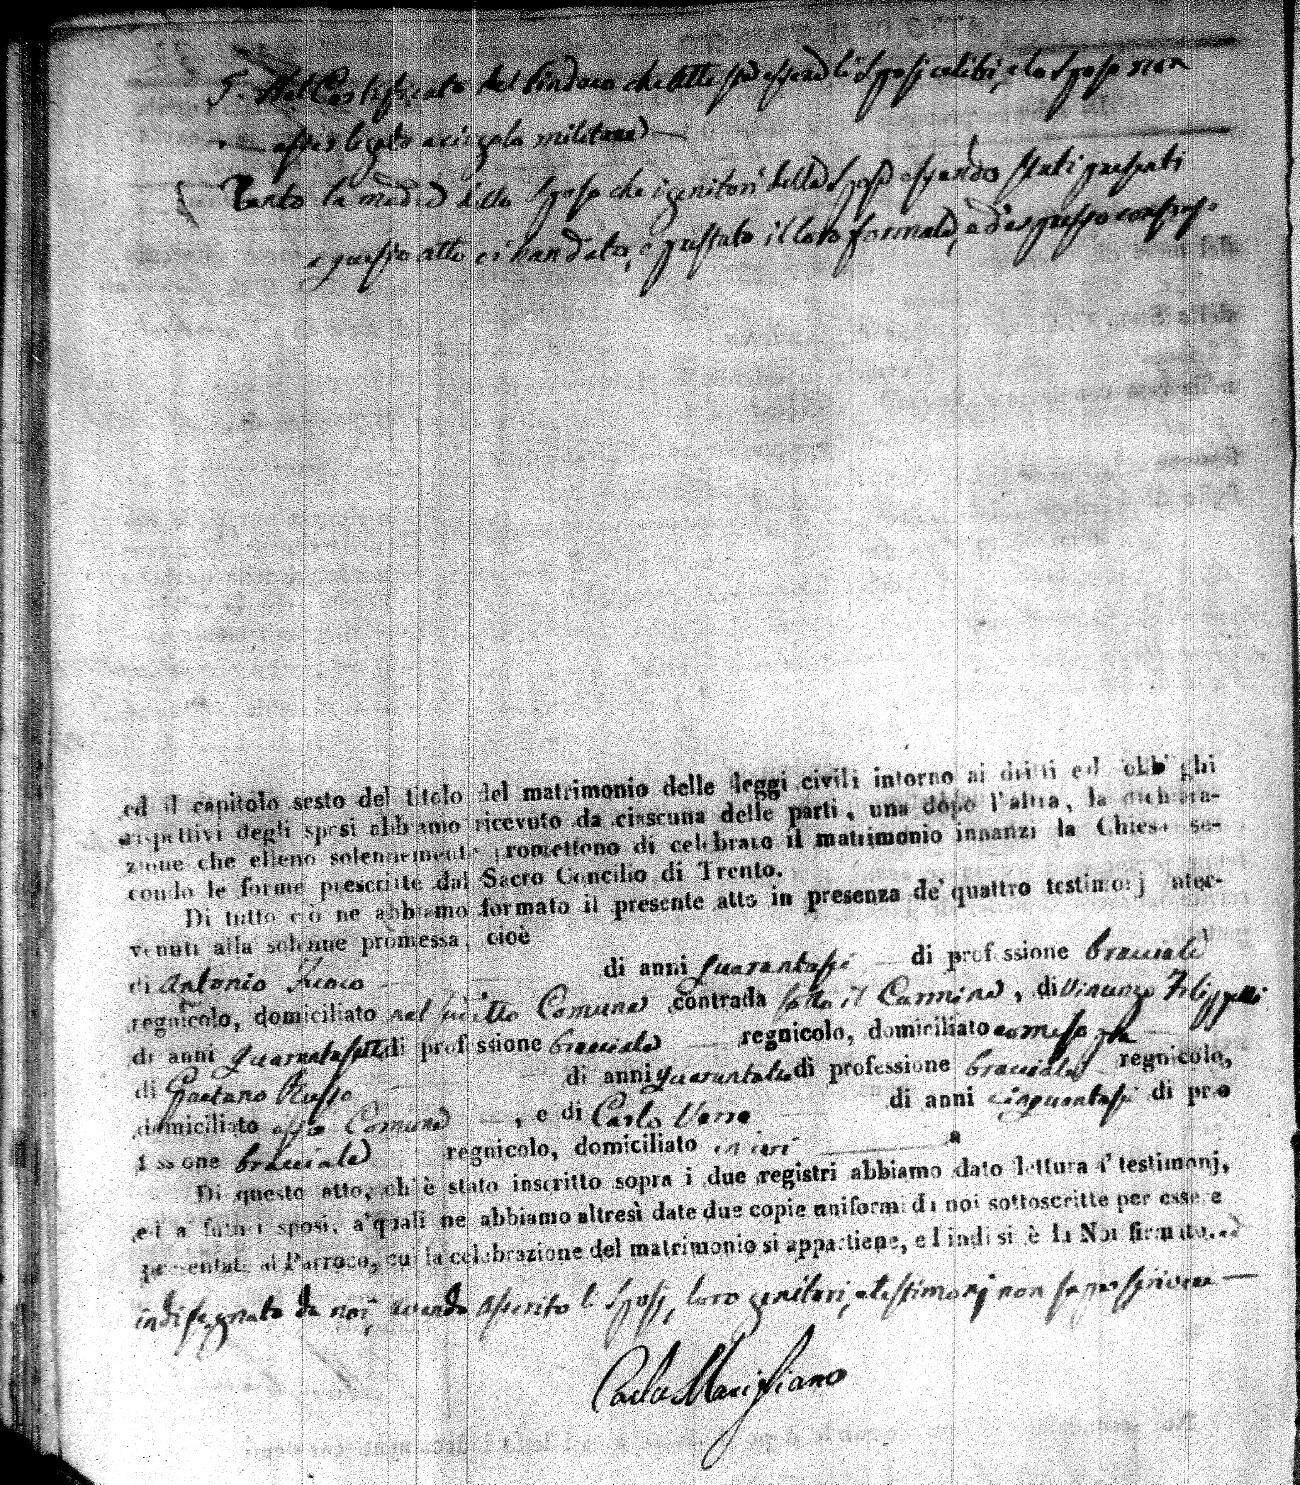 5. Nel Certificato del Sindaco che atte essere li Sposi celibi, e lo Sposo non
esser legato a cingolo militare
Tanto la madre dello Sposo che i genitori della Sposa essendo stati presenti
a questo atto ci han dato, e prestato il loro formale, ed espresso consenso
ed il capitolo sesto del titolo del matrimonio delle leggi civili intorno ai dritti ed obblighi
rispettivi degli sposi abbiamo ricevuto da ciascuna delle parti, una dopo l'altra, la dichiara-
zione che elleno solennemente promettono di celebrare il matrimonio innanzi la Chiesa se-
condo le forme prescritte dal Sacro Concilio di Trento.
Di tutto ciò ne abbiamo formato il presente atto in presenza de' quattro testimonj inter-
venuti alla solenne promessa, cioè
di Antonio di anni quarantasei di professione bracciale
regnicolo, domiciliato nel Comune contrada sotto il Carmine, di Vincenzo
di anni quarantasette di professione bracciale regnicolo, domiciliato come sopra
di Gaetano Russo di anni di professione bracciale regnicolo,
domiciliato Comune, e di Carlo di anni cinquantasei di pro
fessione bracciale regnicolo, domiciliato in ivi
Di questo atto, ch'è stato inscritto sopra i due registri abbiamo dato lettura a' testimonj,
ed a' futuri sposi, a' quali ne abbiamo altresì date due copie uniformi da noi sottoscritte per essere
presentate al Parroco, cui la celebrazione del matrimonio si appartiene, ed indi si è da Noi firmato...
indi segnato da noi, avendo asserito li Sposi, loro genitori, e testimonj non saper scrivere
Carlo Marigliano